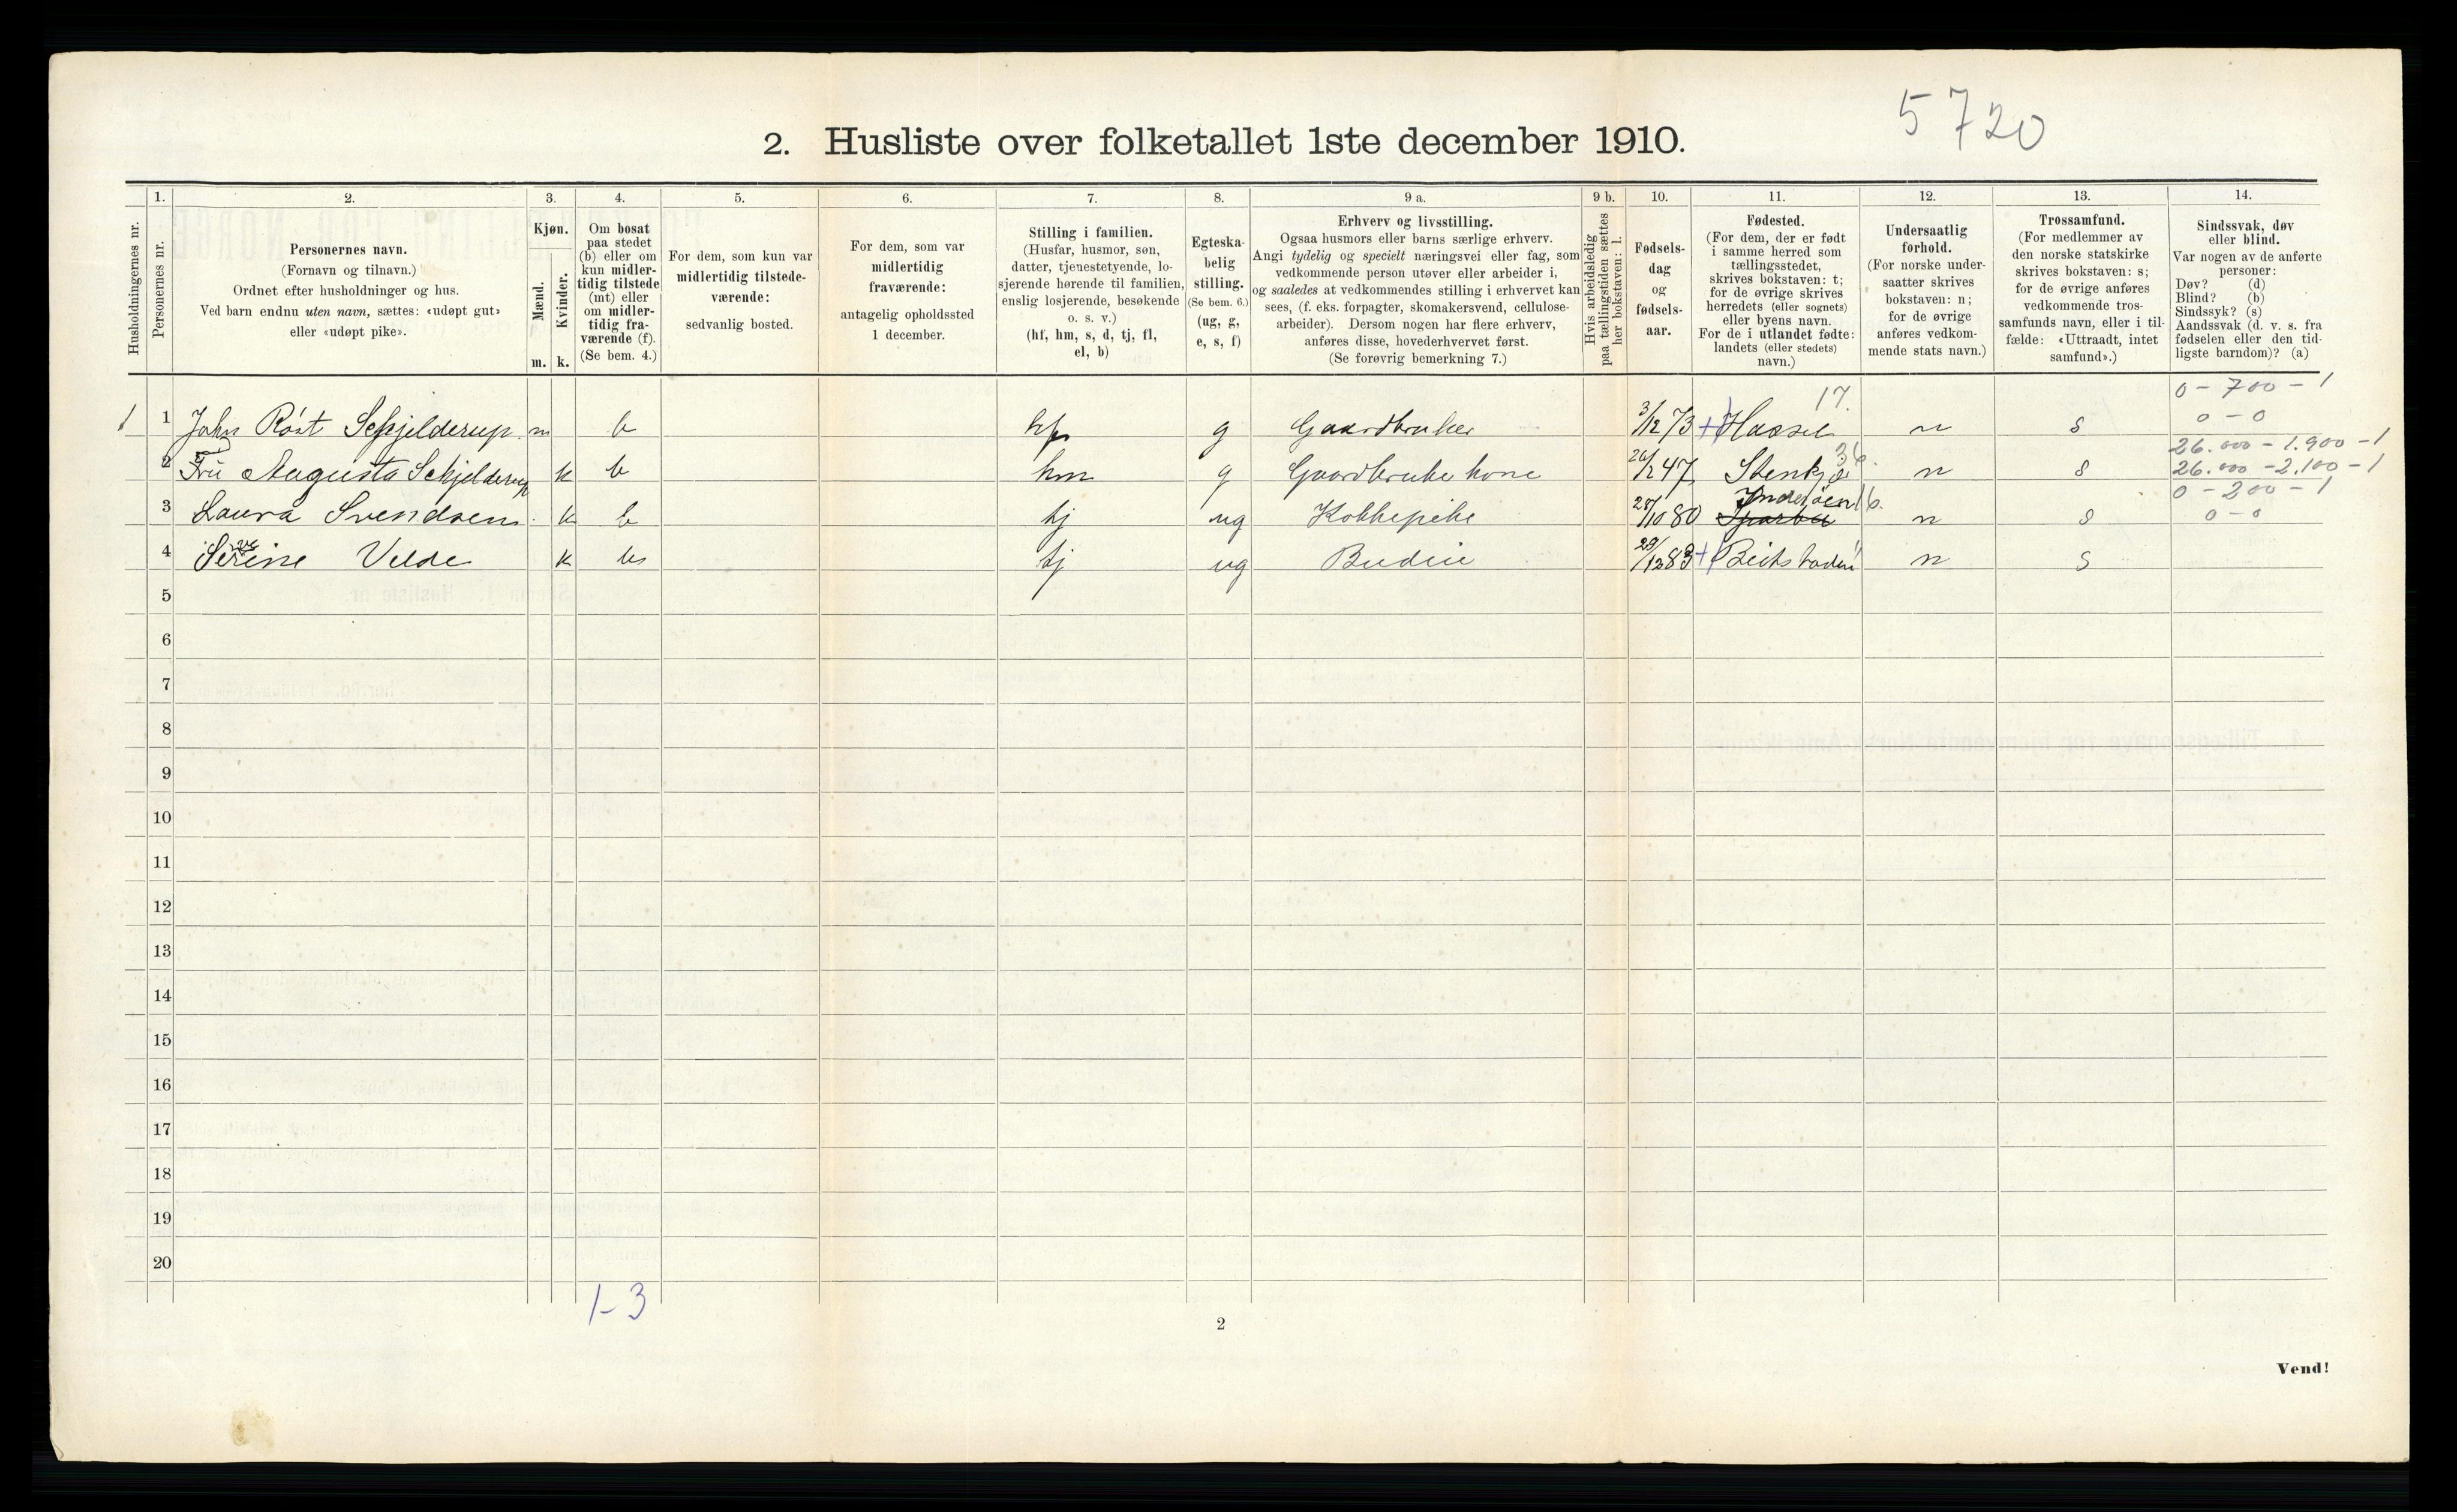 5720
2. Husliste over folketallet 1ste december 1910.
Husholdningernes nr.
1.
Personernes nr.
2.
Personernes navn.
(Fornavn og tilnavn.)
Ordnet efter husholdninger og hus.
Ved barn endnu uten navn, sættes: «udøpt gut»
eller «udøpt pike».
3.
Kjøn.
Mænd.
Kvinder.
m. k.
4.
Om bosat
paa stedet
(b) eller om
kun midler-
tidig tilstede
(mt) eller
om midler-
tidig fra-
værende (f).
(Se bem. 4.)
5.
For dem, som kun var
midlertidig tilstede-
værende:
sedvanlig bosted.
6.
For dem, som var
midlertidig
fraværende:
antagelig opholdssted
1 december.
7.
Stilling i familien.
(Husfar, husmor, søn,
datter, tjenestetyende, lo-
sjerende hørende til familien,
enslig losjerende, besøkende
o. s. v.)
(hf, hm, s, d, tj, fl,
el, b)
8.
Egteska-
belig
stilling.
(Se bem. 6.)
(ug, g,
e, s, f)
9 a.
Erhverv og livsstilling.
Ogsaa husmors eller barns særlige erhverv.
Angi tydelig og specielt næringsvei eller fag, som
vedkommende person utøver eller arbeider i,
og saaledes at vedkommendes stilling i erhvervet kan
sees, (f. eks. forpagter, skomakersvend, cellulose-
arbeider). Dersom nogen har flere erhverv,
anføres disse, hovederhvervet først.
(Se forøvrig bemerkning 7.)
9 b.
Hvis arbeidsledig
paa tællingstiden sættes
her bokstaven: l.
10.
Fødsels-
dag
og
fødsels-
aar.
11.
Fødested.
(For dem, der er født
i samme herred som
tællingsstedet,
skrives bokstaven: t;
for de øvrige skrives
herredets (eller sognets)
eller byens navn.
For de i utlandet fødte:
landets (eller stedets)
navn.)
12.
Undersaatlig
forhold.
(For norske under-
saatter skrives
bokstaven: n;
for de øvrige
anføres vedkom-
mende stats navn.)
13.
Trossamfund.
(For medlemmer av
den norske statskirke
skrives bokstaven: s;
for de øvrige anføres
vedkommende tros-
samfunds navn, eller i til-
fælde: «Uttraadt, intet
samfund».)
14.
Sindssvak, døv
eller blind.
Var nogen av de anførte
personer:
Døv? (d)
Blind? (b)
Sindssyk? (s)
Aandssvak (d. v. s. fra
fødselen eller den tid-
ligste barndom)? (a)
0 - 700 - 1
17.
1 1 John Röst Schjelderup. m b hf g Gaardbruker 3/12 73 + Hassel n s 0 - 0
26.000 - 1.900 - 1
36.
2 Fru Augusta Schjelderup k b hm g Gaardbruke kone 26/2 47 Stenkjær n s 26.000 - 2.100 - 1
0 - 200 - 1
Inderöen 16.
3 Laura Svendsen. k b tj ug Kokkepike 28/10 80 Sparbu n s 0 - 0
4 Serine Velde k b tj ug Budeie 29/12 83 + Beitstaden n s
5
6
7
8
9
10
11
12
13
14
15
16
17
18
19
20
1-3
2
Vend!